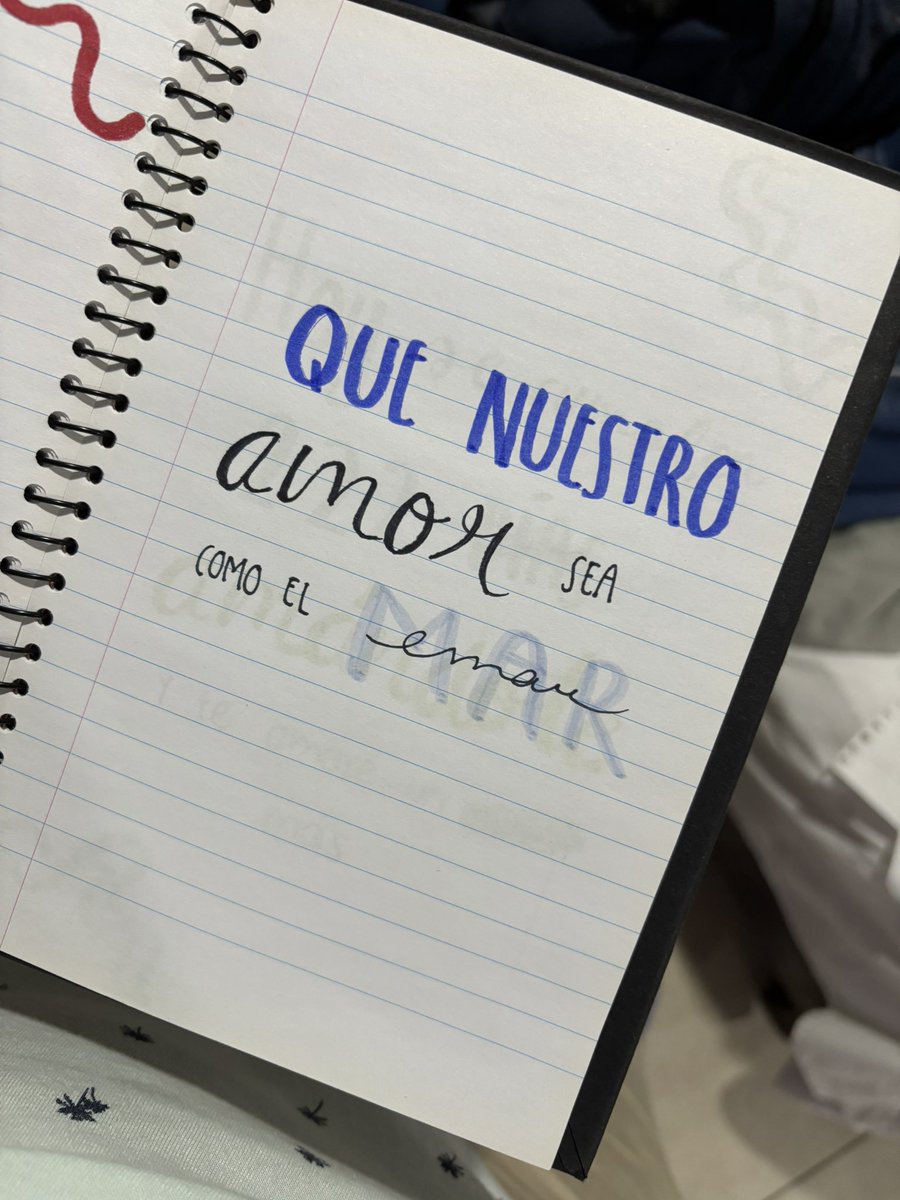 QUE NUESTRO
amor SEA
COMO EL MAR